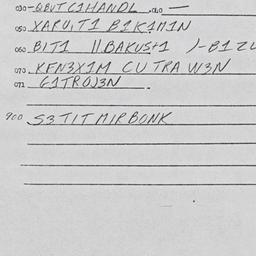 030-QBUTC1HANDL .040 —
050 XARVIT1 B1K1M1N
060 B1T1 11BAKUS+1 )-B1ZU
070 KFN3X1M CU TRA W3N
071 G1TR0J3N .
900 S3TITMIRBONK